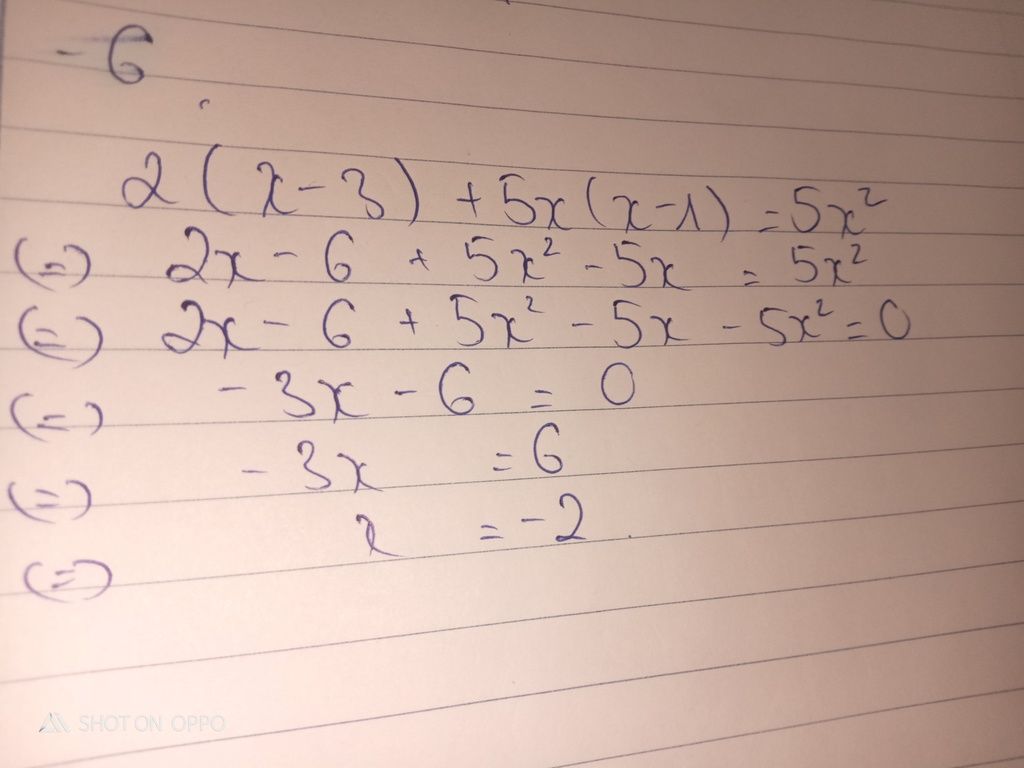 -6
2(x-3) +5x(x-1) =5x²
(=) 2x-6 + 5x² -5x = 5x²
(=) 2x-6 + 5x² -5x -5x² =0
(=) -3x-6 = 0
(=) -3x =6
(=) x =-2.
SHOT ON OPPO